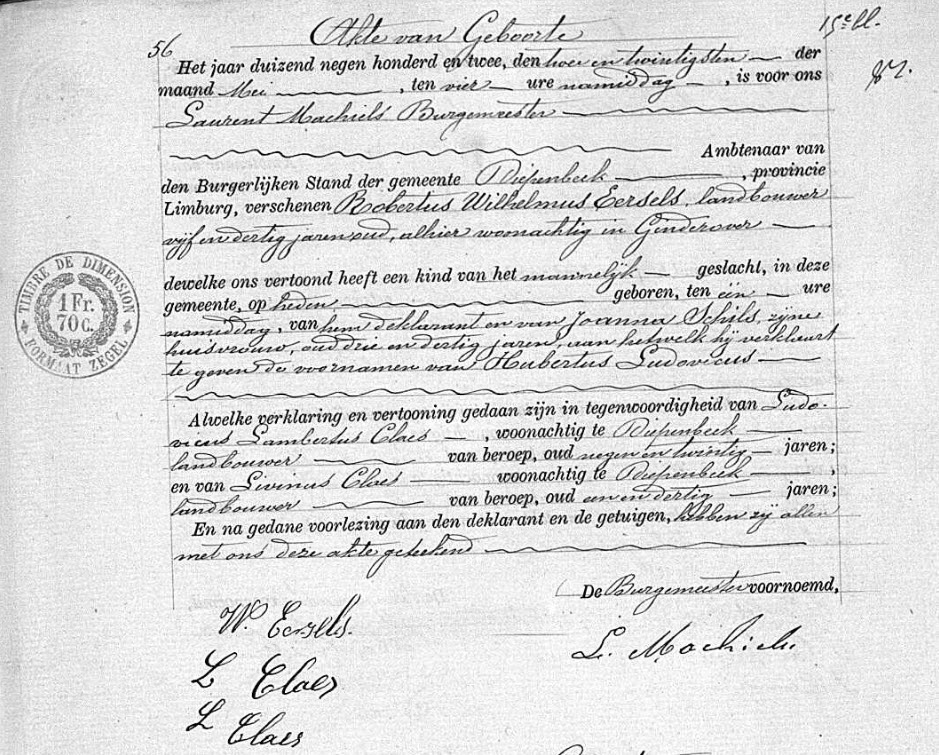 15e bl.
56 Akte van Geboorte
Het jaar duizend negen honderd en twee, den twee en twintigsten der
maand Mei, ten vier ure namiddag, is voor ons
Laurent Machiels Burgemeester
Ambtenaar van
den Burgerlijken Stand der gemeente Diepenbeek, provincie
Limburg, verschenen Robertus Wilhelmus Eersels, landbouwer
vijf en dertig jaren oud, alhier woonachtig in Ginderover
dewelke ons vertoond heeft een kind van het mannelijk geslacht, in deze
gemeente, op heden geboren, ten één ure
namiddag, van hem deklarant en van Joanna Schils, zijne
huisvrouw, oud drie en dertig jaren, aan hetwelk hij verklaart
te geven de voornamen van Hubertus Ludovicus
Alwelke verklaring en vertooning gedaan zijn in tegenwoordigheid van Ludo-
vicus Lambertus Claes, woonachtig te Diepenbeek
landbouwer van beroep, oud negen en twintig jaren;
en van Livinus Claes woonachtig te Diepenbeek,
landbouwer van beroep, oud een en dertig jaren;
En na gedane voorlezing aan den deklarant en de getuigen, hebben zij allen
met ons deze akte geteekend
De Burgemeester voornoemd,
W. Eersels.
L. Machiels
L Claes
L Claes
TIMBRE DE DIMENSION
1 Fr.
70 c.
FORMAAT ZEGEL